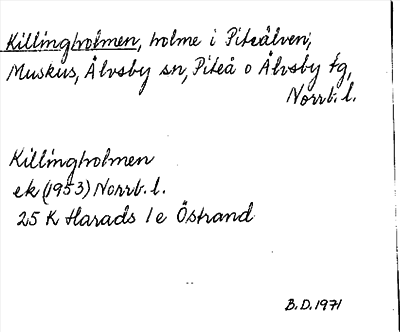 Killingholmen, holme i Piteälven,
Muskus, Älvsby sn, Piteå o Älvsby tg,
Norrb. l.
Killingholmen
ek (1953) Norrb. l.
25 K Harads 1 e Östrand
B.D. 1971